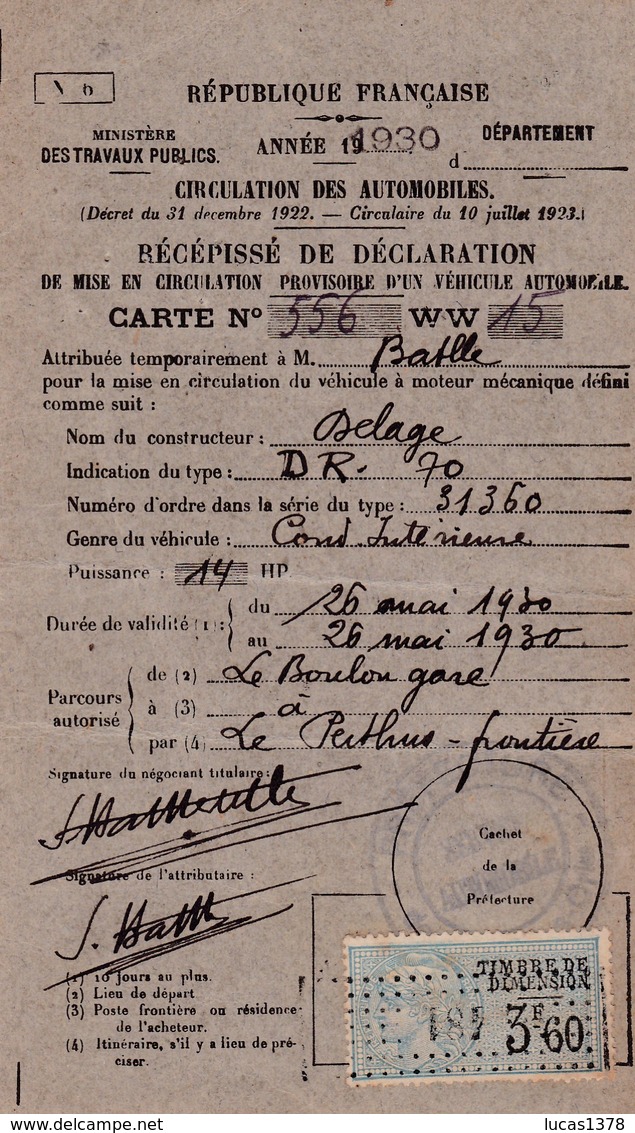 N 6
RÉPUBLIQUE FRANÇAISE
MINISTÈRE
DES TRAVAUX PUBLICS.
ANNÉE 19 1930
DÉPARTEMENT
d
CIRCULATION DES AUTOMOBILES.
(Décret du 31 decembre 1922. — Circulaire du 10 juillet 1923.)
RÉCÉPISSÉ DE DÉCLARATION
DE MISE EN CIRCULATION PROVISOIRE D'UN VÉHICULE AUTOMOBILE.
CARTE No 556 WW 15
Attribuée temporairement à M. Batlle
pour la mise en circulation du véhicule à moteur mécanique défini
comme suit :
Nom du constructeur : Delage
Indication du type : DR. 70
Numéro d'ordre dans la série du type : 31360
Genre du véhicule : Cond. Intérieure
Puissance : 14 HP
Durée de validité (1) :
du 26 mai 1930
au 26 mai 1930
Parcours autorisé
de (2) Le Boulou gare
à (3) à
par (4) Le Perthus - frontière
Signature du négociant titulaire :
Signature de l'attributaire :
Cachet
de la
Préfecture
(1) 10 jours au plus.
(2) Lieu de départ
(3) Poste frontière ou résidence
de l'acheteur.
(4) Itinéraire, s'il y a lieu de pré-
ciser.
TIMBRE DE
DIMENSION
3F60
lucas1378